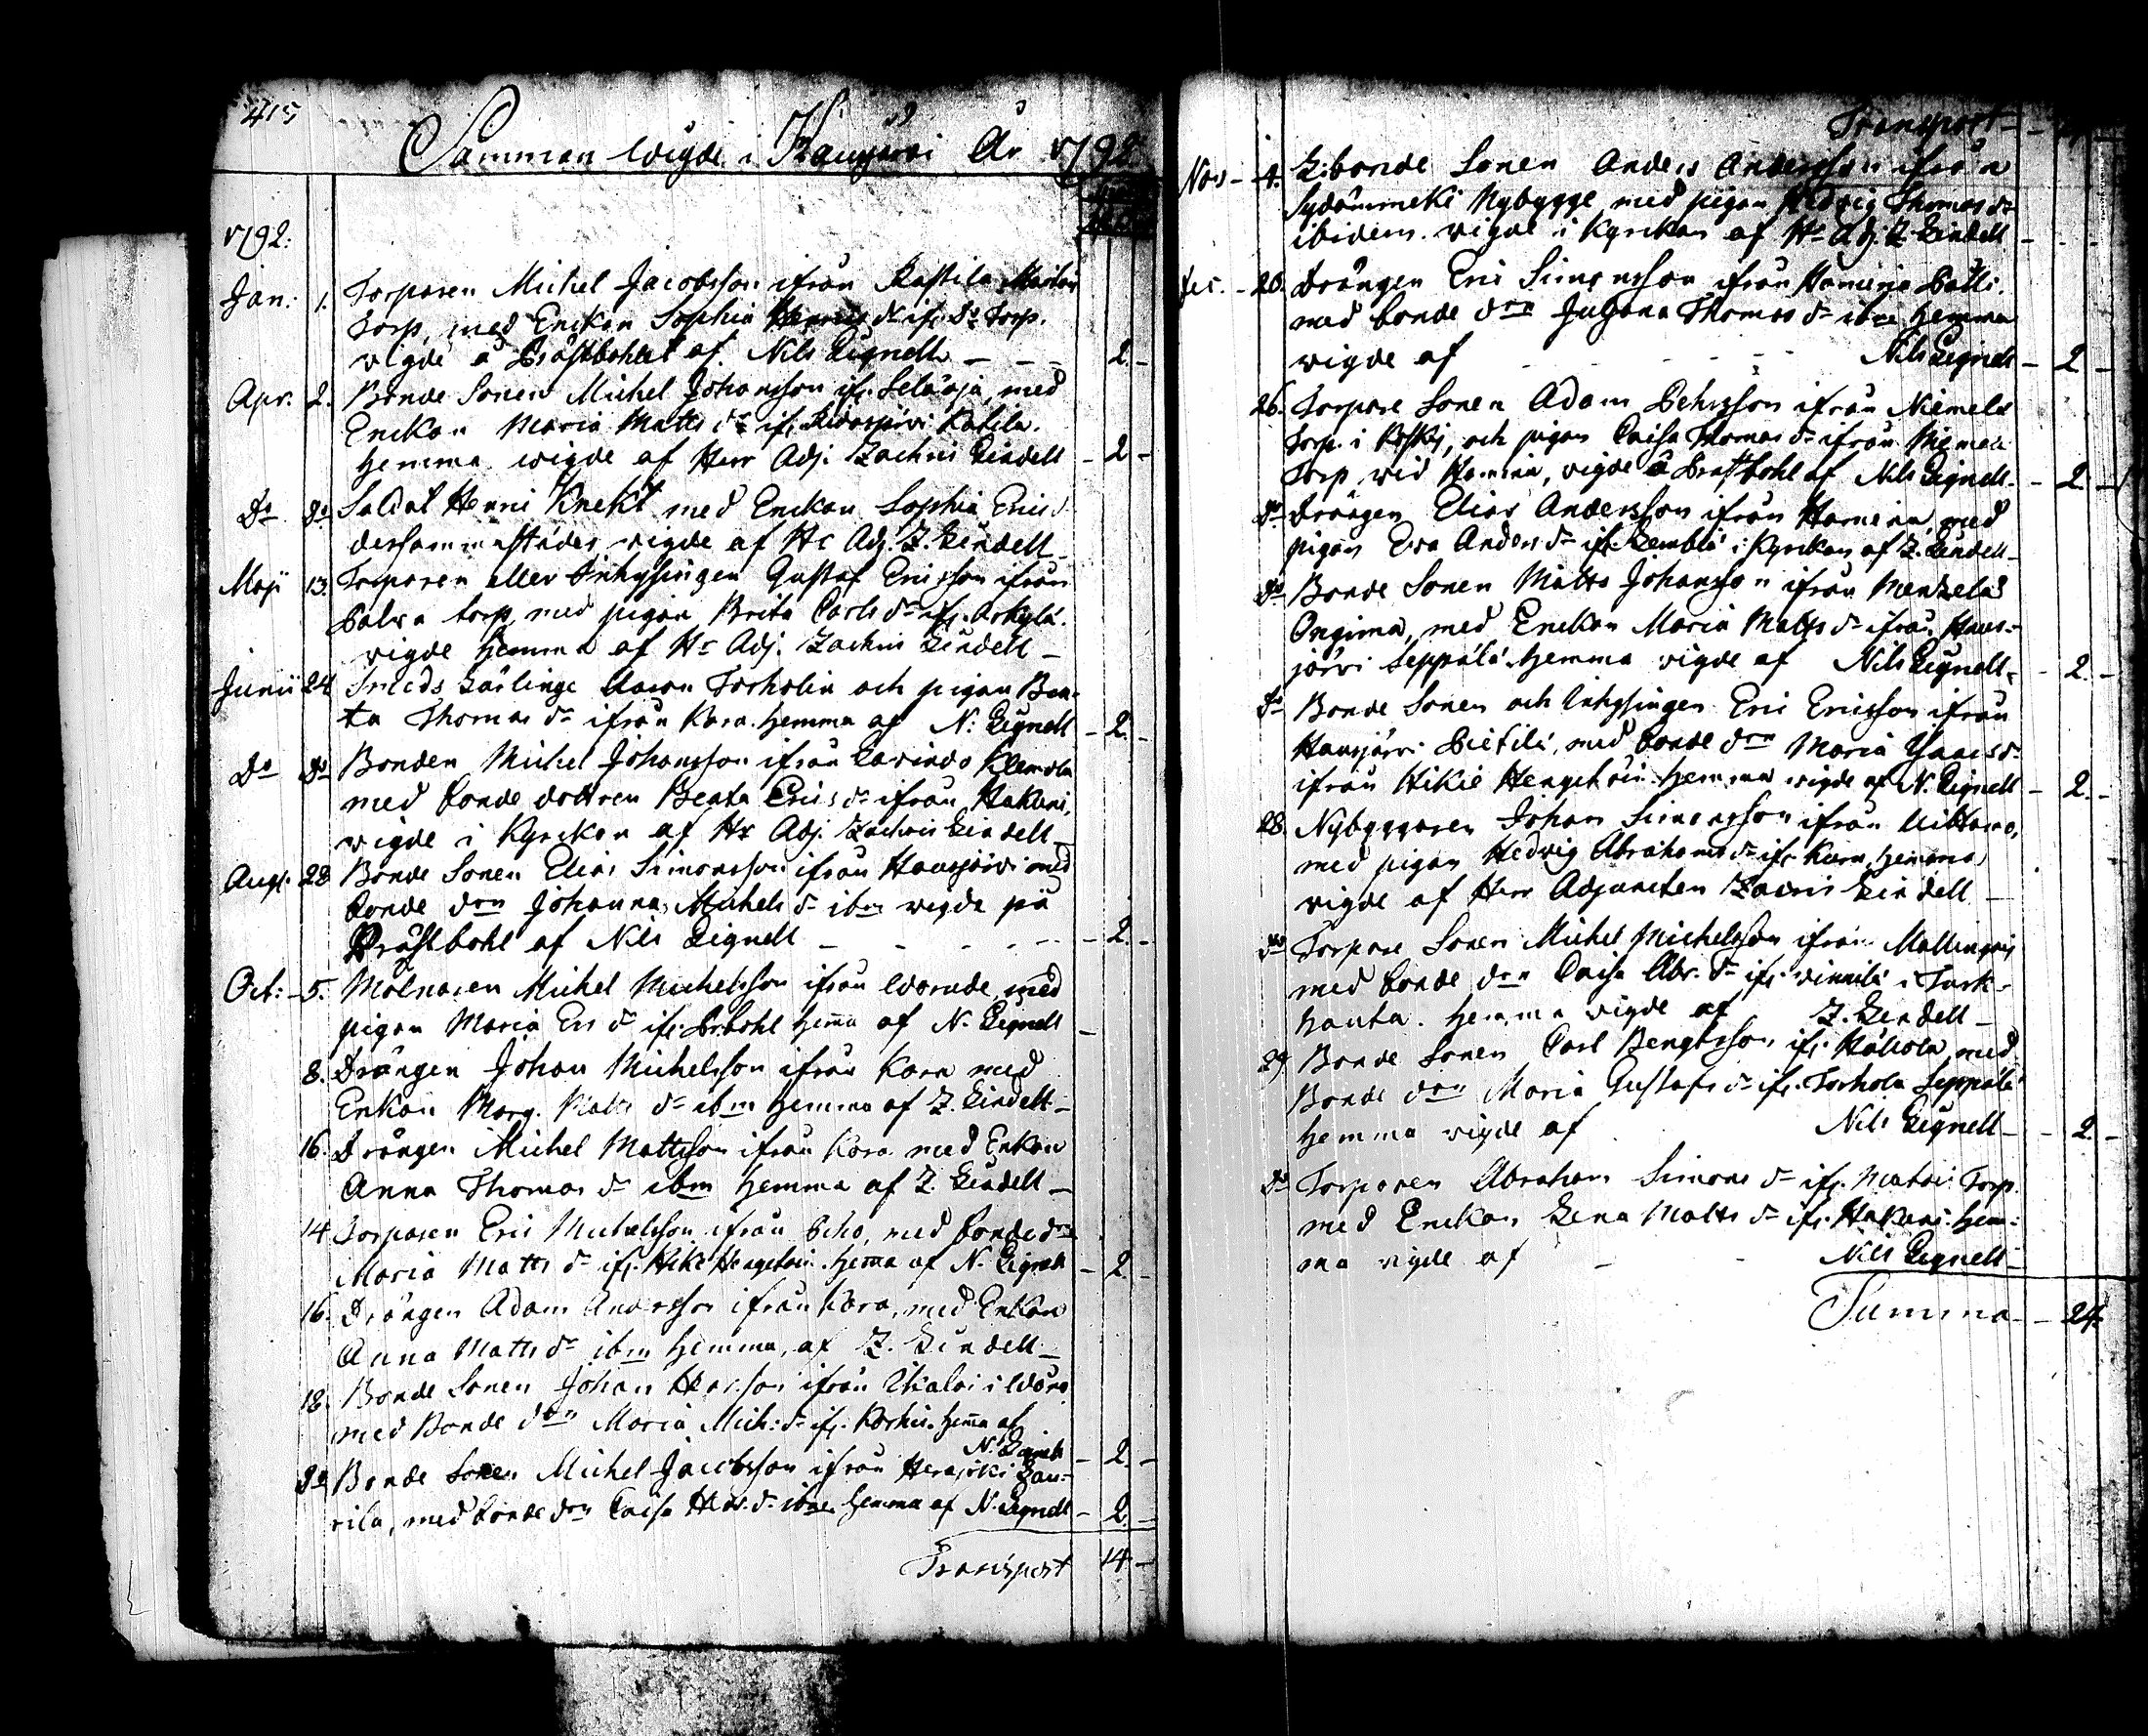 415
Sammanwigde i Hausjärvi År 1792
1792:
Jan: 1. Torparen Michel Jacobsson ifrån Rastila
Torp, med Enckan Sophia Henrics dr ifr. Do Torp.
vigde å Präståbohlet af Nils Lignell - 2.
Apr. 2. Bonde Sonen Michel Johansson ifr. Selänjä, med
Enckan Maria Matts dr ifr. Ridasjärvi Katila.
hemma wigde af Herr Adj. Zachris Lindell - 2
Do Do Soldat Henric Knekt med Enckan Sophia Erics
dersammastädes, vigde af Hr Adj. Z. Lindell
Maji 13. Torparen eller Inhysingen Gustaf Ericsson ifrån
Palva torp, med pigan Brita Carls dr ifr. Arkylä.
vigde hemma af Hr Adj. Zachris Lindell
Junii 24. Smeds Lärlinge Aaron Torholin och pigan Bea-
ta Thomas dr ifrån Kara. hemma af N: Lignell - 2.
Do Do Bonden Michel Johansson ifrån Lavinda Klemola
med bonde dottren Beata Erics dr ifrån Hakuni,
vigde i Kyrckan af Hr Adj. Zachris Lindell
Augs. 28 Bonde Sonen Elias Simonsson ifrån Hausjärvi med
bonde drn Johanna Michels dr ibm vigde på
Prästbohl af Nils Lignell - 2.
Oct: 5. Mölnaren Michel Michelsson ifrån med
pigan Maria Ers dr ifr. Prbohl hemma af N. Lignell
8. Drängen Johan Michelsson ifrån Kara med
Enkan Marg. Matts dr ibm hemma af Z. Lindell
16. Drängen Michel Mattsson ifrån Kara med Enkan
Anna Thomas dr ibm hemma af Z. Lindell
14 Torparen Eric Michelsson ifrån Eho, med bonde drn
Maria Matts dr ifr. Hikiä hemma af N. Lignell - 2.
16. Drängen Adam Andersson ifrån Kara, med Enkan
Anna Matts dr ibm hemma, af Z. Lindell
18. Bonde Sonen Johan ifrån i
med Bonde drn Maria Mich: dr ifr. Kårkis. hemma af
N. Lignell - 2.
Do Bonde Sonen Michel Jacobsson ifrån Herajoki Lau-
rila, med bonde drn Caisa dr ibm hemma af N. Lignell - 2.
Transport 14.
Transport
Nov. 4. bonde Sonen Anders Andersson ifrån
Sydämmeki Nybygge med pigan Hedvig Thomas dr
ibidem. vigde i Kyrckan af Hr Adj. Z. Lindell
Dec. 26. Drängen Eric Simonsson ifrån Hamina
med bonde drn Juliana Thomas dr ibm hemma
vigde af Nils Lignell - 2
26. Torpare Sonen Adam Pehrsson ifrån Niemelä
Torp. i och pigan Caisa Thomas dr ifrån Niemelä
Torp vid Hamina, vigde å Prästbohl af Nils Lignell - 2.
Do Drängen Elias Andersson ifrån Hamina, med
pigan Eva Anders dr ifr. i Kyrckan af Z. Lindell
Do Bonde Sonen Matts Johansson ifrån
Ongima, med Enckan Maria Matts dr ifrån Haus-
järvi Seppälä. hemma vigde af Nils Lignell - 2.
Do Bonde Sonen och Inhysingen Eric Ericsson ifrån
Hausjärvi Pietilä, med bonde drn Maria dr
ifrån Hikiä hemma vigde af N. Lignell - 2.
28. Nybyggaren Johan Simonsson ifrån
med pigan Hedvig Abrahams dr ifr. Kara hemma
vigde af Herr Adjuncten Zacris Lindell
Do Torpare Sonen Michel Michelsson ifrån
med bonde drn Caisa Abr. dr ifr. i Turk-
hauta. hemma vigde af Z. Lindell
29. Bonde Sonen Carl Bengtsson ifr. med
Bonde drn Maria Gustafs dr ifr. Torhola Seppälä
hemma vigde af Nils Lignell - 2.
Do Torparen Abraham Simons dr ifr. Torp.
med Enckan Lena Matts dr ifr. Hakuni. hem-
ma vigde af Nils Lignell
Summa - 24.